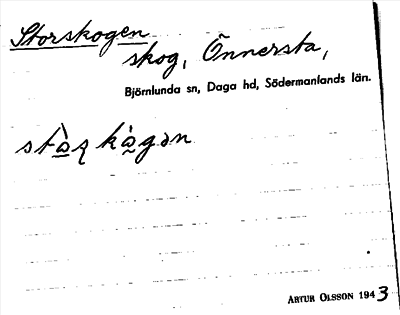 Storskogen
skog, Önnersta,
Björnlunda sn, Daga hd, Södermanlands län.
ARTUR OLSSON 1943